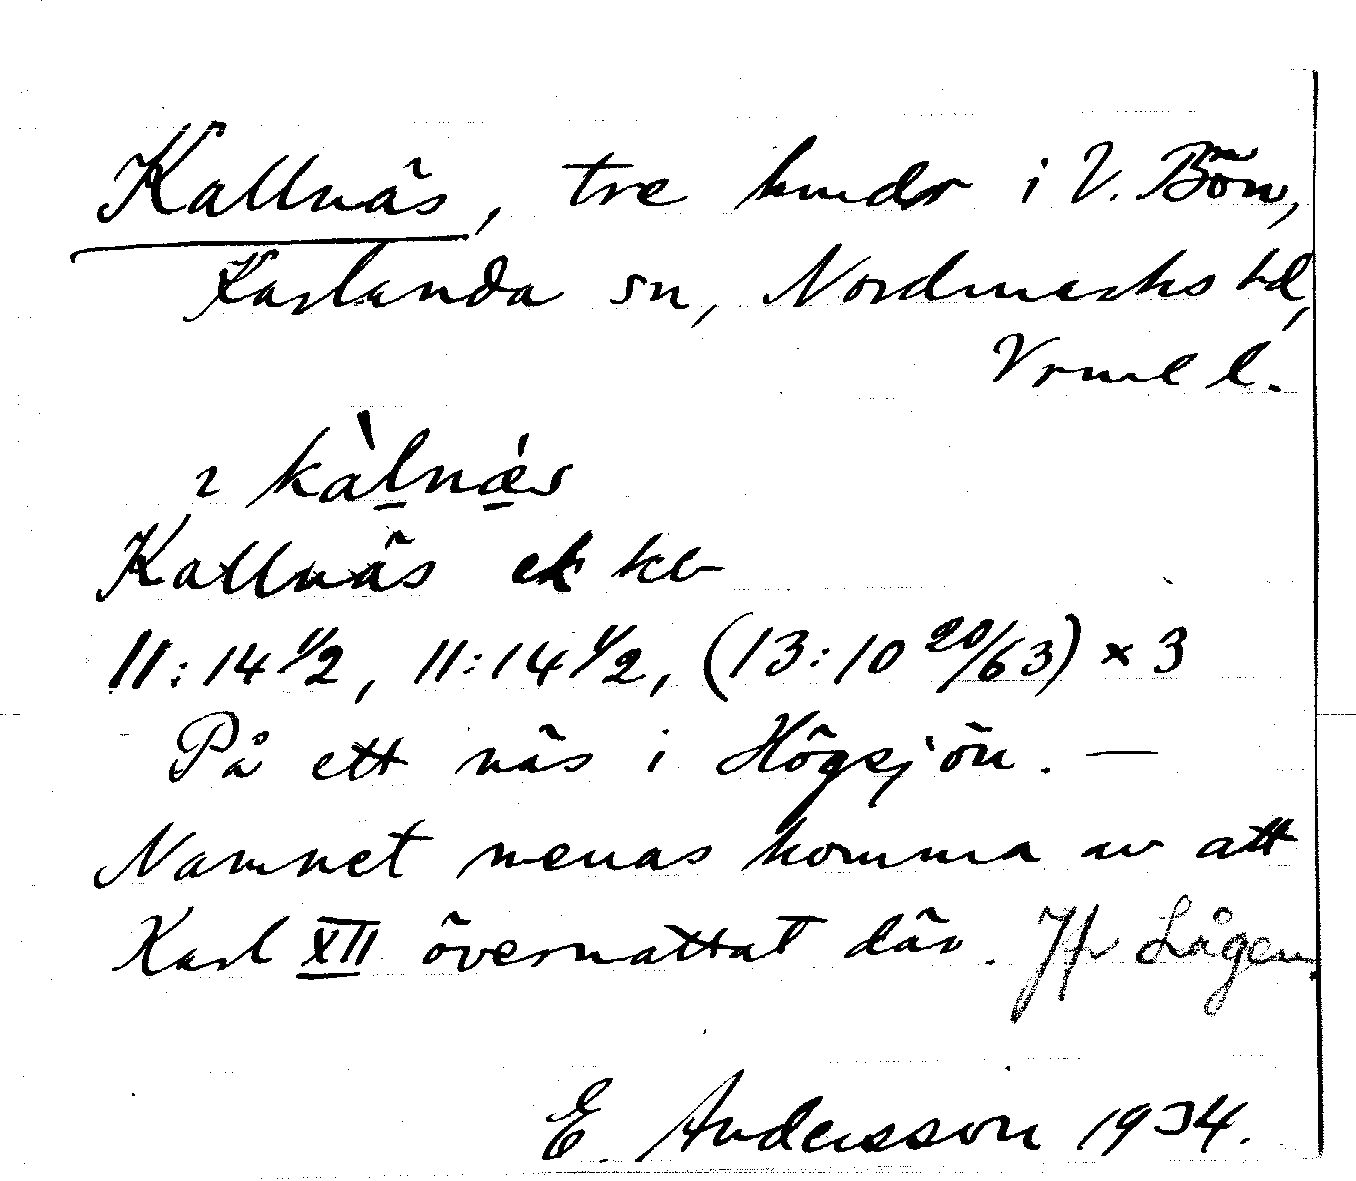 Kallnäs, tre hmdr i V. Bön,
Karlanda sn, Nordmarks hd,
Vrml l.
2 kàlnæ̀s
Kallnäs ek kb
11:14 1/2, 11:14 1/2, (13:10 20/63) × 3
På ett näs i Högsjön. —
Namnet menas komma av att
Karl XII övernattat där. Jfr Lågen.
E. Andersson 1934.